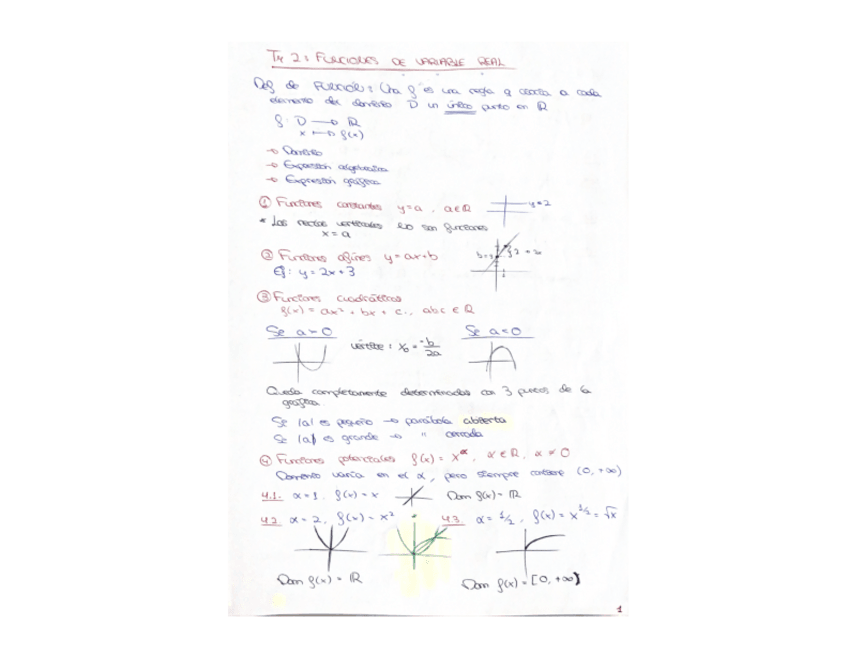 TM 2: FUNCIONES DE VARIABLE REAL
Def de FUNCIÓN: Una f es una regla q asocia a cada
elemento del dominio D un único punto en ℝ
f: D → ℝ
x → f(x)
→ Dominio
→ Expresión algebraica
→ Expresión gráfica
① Funciones constantes y=a, a∈ℝ
y=2
* Las rectas verticales NO son funciones
x=a
② Funciones afines y=ax+b
Ej: y=2x+3
③ Funciones cuadráticas
f(x) = ax² + bx + c, abc ∈ ℝ
Se a>0
vértice: x₀ = -b/2a
Se a<0
Queda completamente determinadas con 3 puntos de la
gráfica.
Se |a| es pequeño → parábola abierta
Se |a| es grande → " cerrada
④ Funciones potenciales f(x) = x^α, α∈ℝ, α≠0
Dominio varía en el α, pero siempre contiene (0, +∞)
4.1. α=1, f(x)=x
Dom f(x) = ℝ
4.2 α=2, f(x)=x²
4.3 α=1/2, f(x)=x^1/2=√x
Dom f(x) = ℝ
Dom f(x) = [0, +∞)
1